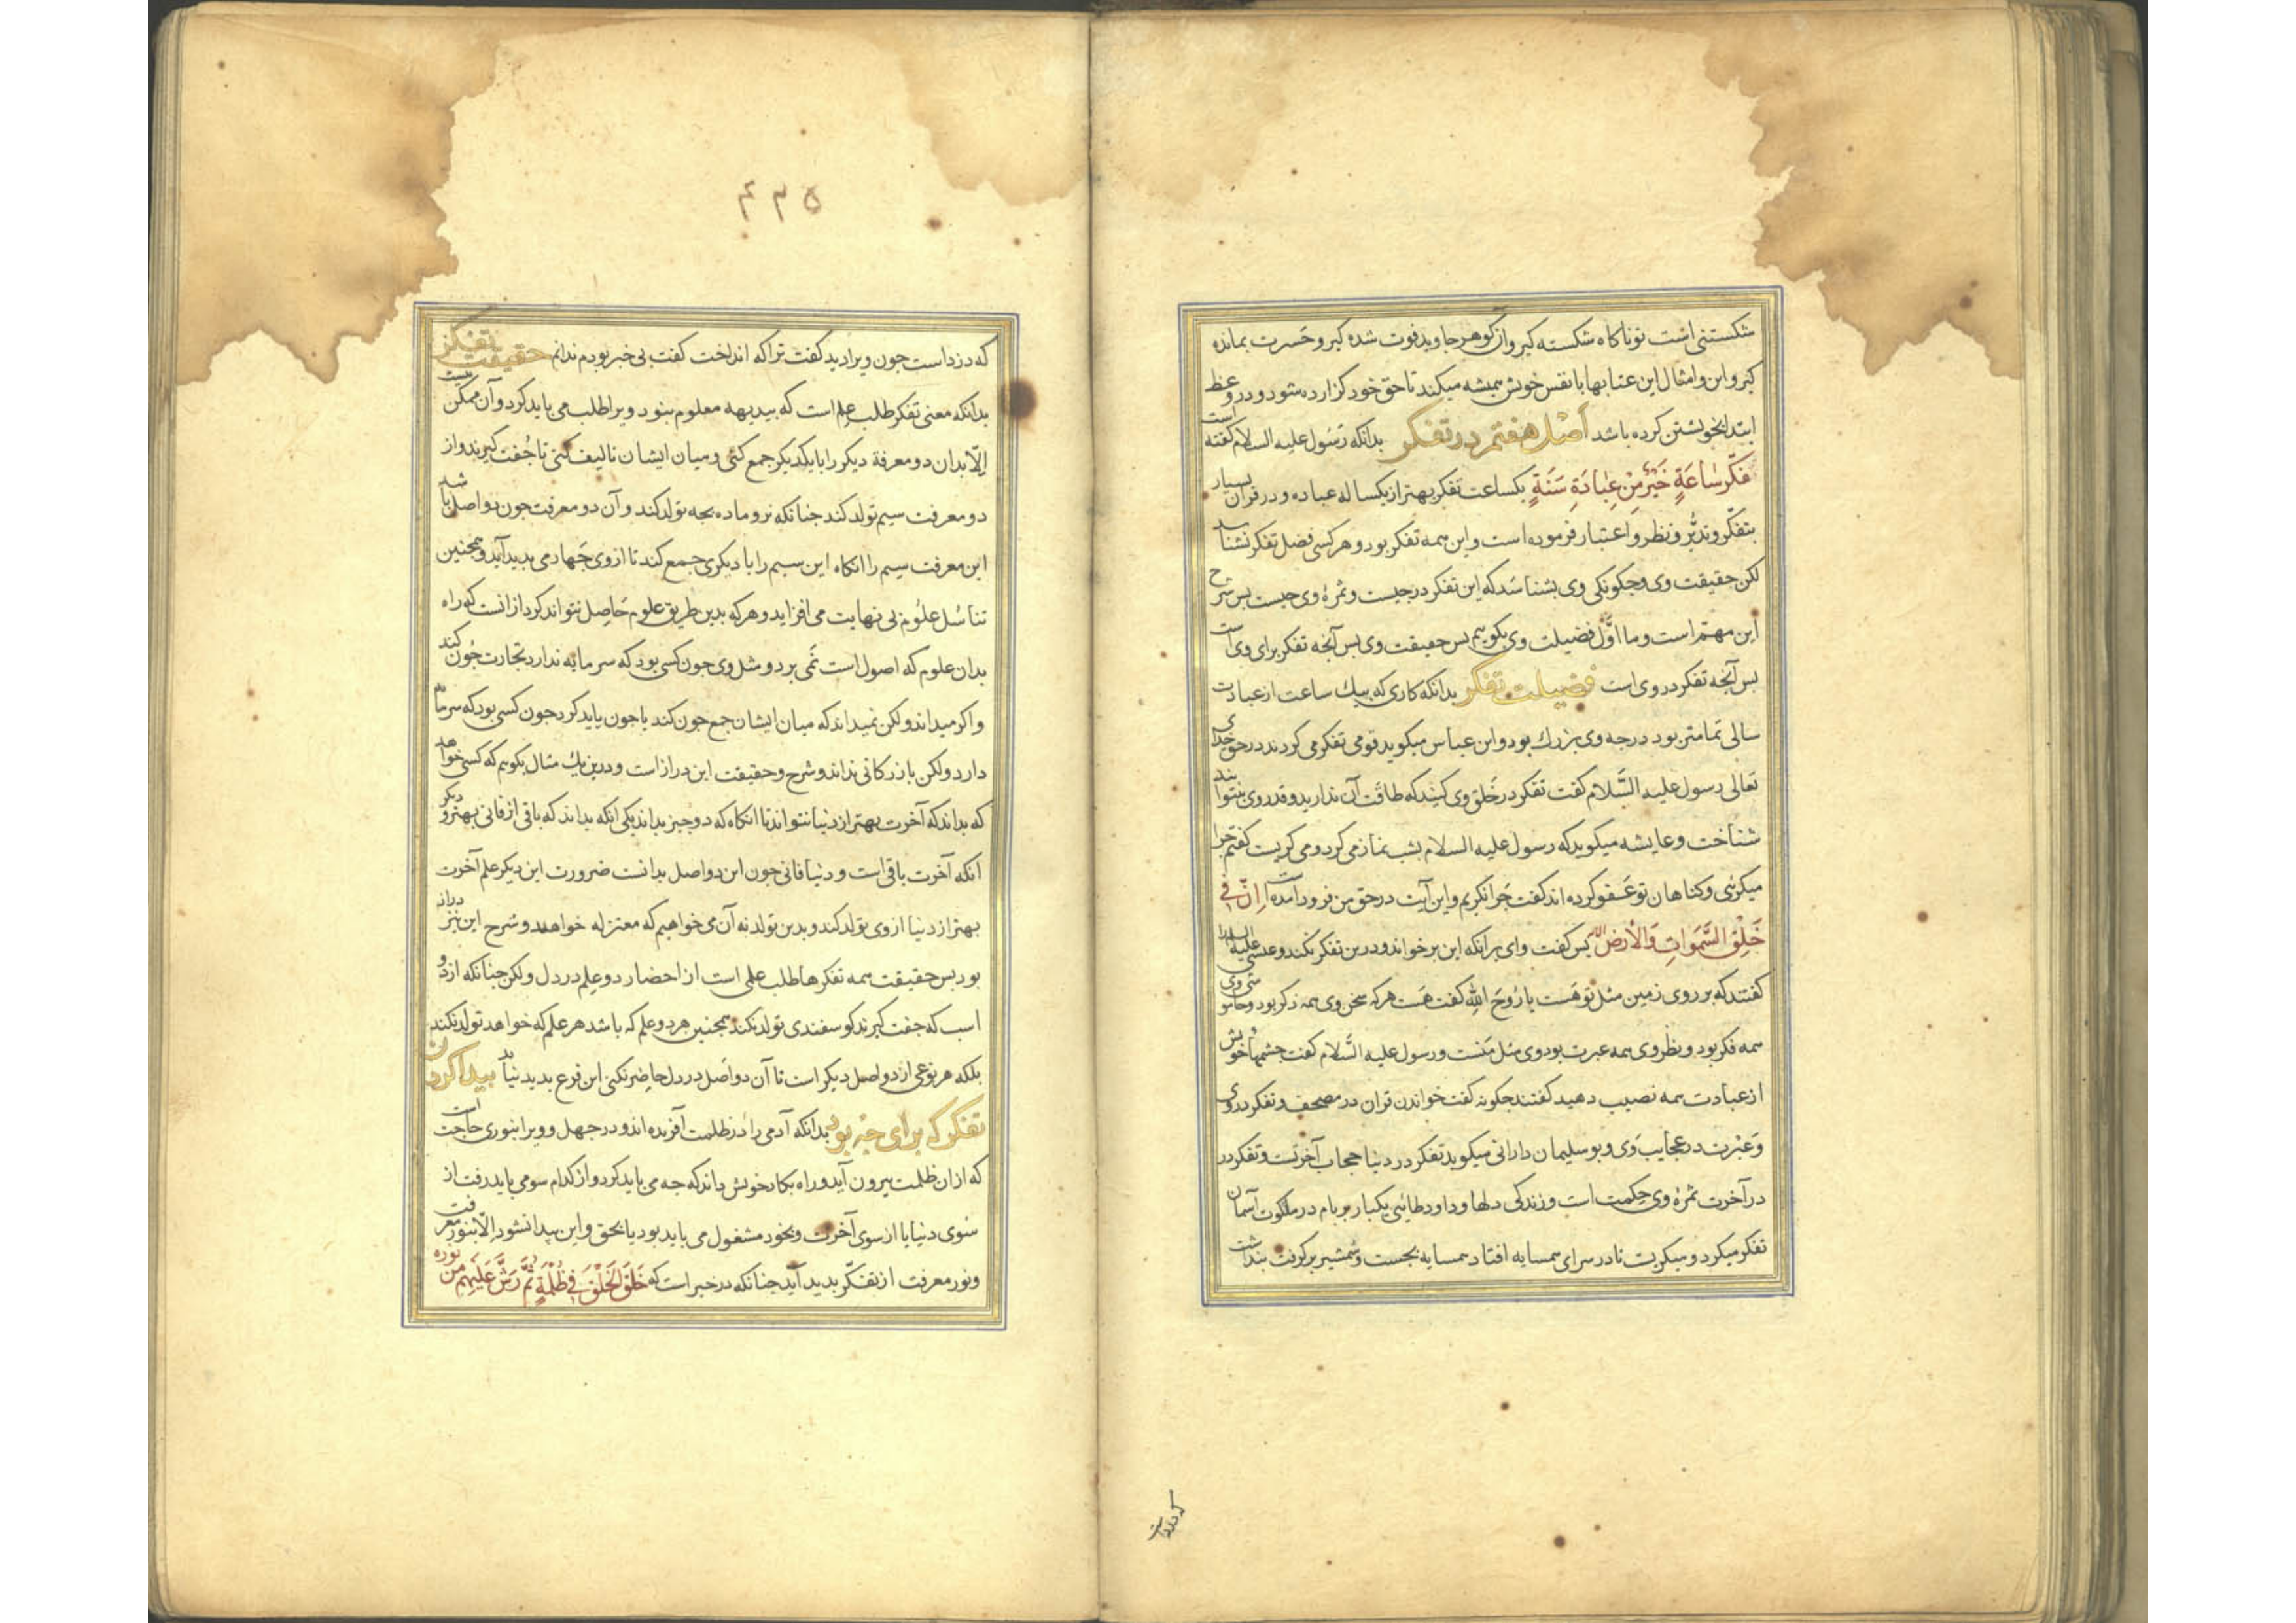 شکستنی است توناکاه شکسته کیر وآن کوهر جاوید فوت شده کیر وحسرت بمانده
کیر واین وامثال این عتابها با نفس خویش همیشه میکند تا حق خود کزارده شود ودر وعظ
ابتدا بخویشتن کرده باشد اصل هفتم در تفکر بدانکه رسول علیه السلام کفته است
تفکّر ساعةٍ خیرٌ من عبادة سنةٍ یکساعت تفکر بهتر از یکساله عباده ودر قران بسیار
بتفکّر وتدبّر ونظر واعتبار فرموده است واین همه تفکر بود وهر کسی فضل تفکر نشناسد
لکن حقیقت وی وچکونکی وی بشناسد که این تفکر در چیست وثمرهٔ وی چیست بس شرح
این مهتم است وما اوّل فضیلت وی بکویم بس حقیقت وی بس آنچه تفکر برای وی است
بس آنچه تفکر در وی است فضیلت تفکر بدانکه کاری که بیك ساعت از عبادت
سالی تمامتر بود درجه وی بزرك بود وابن عباس میکوید قومی تفکر می کردند در حق خدای
تعالی رسول علیه السّلام کفت تفکر در خلق وی کنید که طاقت آن ندارید وقدر وی نتوانید
شناخت وعایشه میکوید که رسول علیه السلام بشب نماز می کرد ومی کریست کفتم چرا
میکریی وکناهان تو عفو کرده اند کفت چرا نکریم واین آیت در حق من فرود آمده است إنّ فی
خلق السّموات والأرض الآیه بس کفت وای بر آنکه این بر خواند ودرین تفکر نکند وعیسی علیه السلام را
کفتند که بر روی زمین مثل تو هست یا روح الله کفت هست هر که سخن وی همه ذکر بود وخاموشی وی
همه فکر بود ونظر وی همه عبرت بود وی مثل منست ورسول علیه السّلام کفت چشمهاء خویش
از عبادت همه نصیب دهید کفتند چکونه کفت خواندن قران در مصحف وتفکر در وی
وعبرت در عجایب وی وبو سلیمان دارانی میکوید تفکر در دنیا حجاب آخرتست وتفکر در
در آخرت ثمرهٔ وی حکمت است وزندکی دلها وداود طایئی یکبار بر بام در ملکوت آسمان
تفکر میکرد ومیکریست تا در سرای همسایه افتاد همسایه بجست وشمشیر برکرفت بنداشت
که دزداست
٤٣٥
که دزداست جون ویرا دید کفت ترا که انداخت کفت بی خبر بودم ندانم حقیقت تفکر
بدانکه معنی تفکر طلب علم است که ببدیهه معلوم بنود ویرا طلب می باید کرد وآن ممکن نیست
إلّا بدان دو معرفة دیکر را با یکدیکر جمع کنی ومیان ایشان تالیف کنی تا جفت کیرند واز
دو معرفت سیم تولد کند جنانکه نر وماده بچه تولد کند وآن دو معرفت جون دو اصل باشد
این معرفت سیم را انکاه این سیم را با دیکری جمع کند تا از وی چهارمی بدید آید وهمجنین
تناسل علوم بی نهایت می افزاید وهر که بدین طریق علوم حاصل نتواند کرد از انست که راه
بدان علوم که اصول است نمی برد ومثل وی جون کسی بود که سرمایه ندارد تجارت جون کند
واکر میداند ولکن نمیداند که میان ایشان جمع جون کند یا جون باید کرد جون کسی بود که سرمایه
دارد ولکن بازرکانی نداند وشرح وحقیقت این دراز است ودرین یك مثال بکویم که کسی خواهد
که بداند که آخرت بهتر از دنیا نتواند تا انکاه که دو چیز بداند یکی انکه بداند که باقی از فانی بهتر ودیکر
انکه آخرت باقی است ودنیا فانی جون این دو اصل بدانست ضرورت این دیکر علم آخرت
بهتر از دنیا از وی تولد کند وبدین تولد نه آن می خواهیم که معتزله خواهند وشرح این نیز دراز
بود بس حقیقت همه تفکرها طلب علمی است از احضار دو علم در دل ولکن جنانکه از دو
اسب که جفت کیرند کوسفندی تولد نکند همجنین هر دو علم که باشد هر علم که خواهد تولد نکند
بلکه هر نوعی از دو اصل دیکر است تا آن دو اصل در دل حاضر نکنی این فرع بدید نیاید بیدا کردن
تفکر که برای چه بود بدانکه آدمی را در ظلمت آفریده اند ودر جهل وویرا بنوری حاجت است
که از ان ظلمت بیرون آید وراه بکار خویش داند که چه می باید کرد واز کدام سو می باید رفت از
سوی دنیا یا از سوی آخرت وبخود مشغول می باید بود یا بحق واین بیدا نشود إلّا بنور معرفت
ونور معرفت از تفکّر بدید آید جنانکه در خبر است که خلق الخلق فی ظلمةٍ ثمّ رشّ علیهم من نوره